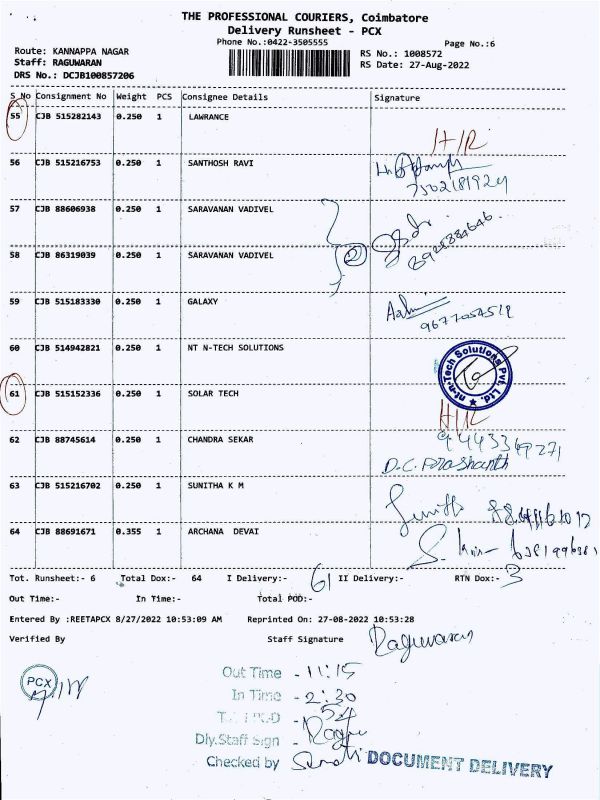 THE PROFESSIONAL COURIERS, Coimbatore
Delivery Runsheet - PCX
Phone No.:0422-3505555
Page No.:6
Route: KANNAPPA NAGAR
Staff: RAGUWARAN
DRS No.: DCJB100857206
RS No.: 1008572
RS Date: 27-Aug-2022
S_No Consignment No Weight PCS Consignee Details Signature
55 CJB 515282143 0.250 1 LAWRANCE
H/R
56 CJB 515216753 0.250 1 SANTHOSH RAVI
7502181924
57 CJB 88606938 0.250 1 SARAVANAN VADIVEL
2
58 CJB 86319039 0.250 1 SARAVANAN VADIVEL
59 CJB 515183330 0.250 1 GALAXY
60 CJB 514942821 0.250 1 NT N-TECH SOLUTIONS
nt-n-Tech Solutions Pvt. Ltd.
61 CJB 515152336 0.250 1 SOLAR TECH
H/R
62 CJB 88745614 0.250 1 CHANDRA SEKAR
63 CJB 515216702 0.250 1 SUNITHA K M
64 CJB 88691671 0.355 1 ARCHANA DEVAI
Tot. Runsheet:- 6 Total Dox:- 64 I Delivery:- 61 II Delivery:- RTN Dox:- 3
Out Time:- In Time:- Total POD:-
Entered By :REETAPCX 8/27/2022 10:53:09 AM Reprinted On: 27-08-2022 10:53:28
Verified By Staff Signature Raguwaran
PCX
Out Time - 11:15
In Time - 2:30
- 54
Dly.Staff Sign - Raghu
Checked by
DOCUMENT DELIVERY